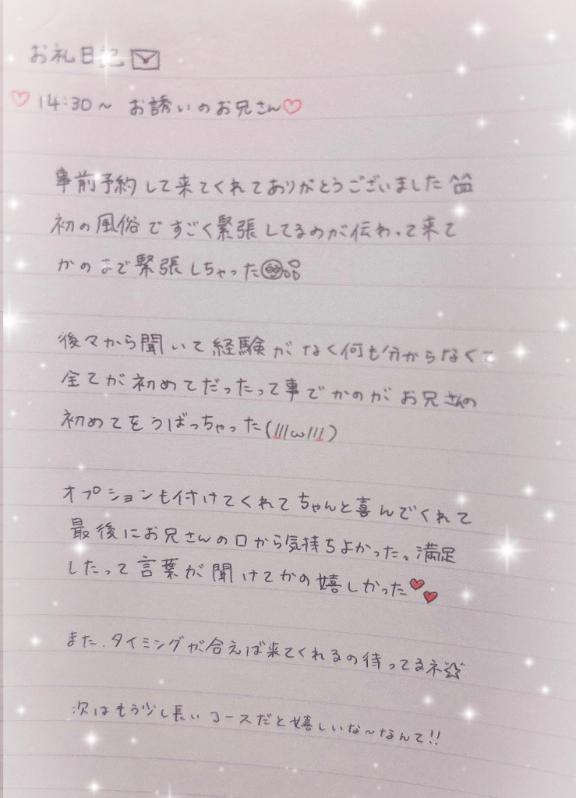 お礼日記
♡14:30~ お誘いのお兄さん♡
事前予約して来てくれてありがとうございました
初の風俗ですごく緊張してるのが伝わって来て
かのまで緊張しちゃった
後々から聞いて経験がなく何も分からなくて
全てが初めてだったって事でかのがお兄さんの
初めてをうばっちゃった(///ω///)
オプションも付けてくれてちゃんと喜んでくれて
最後にお兄さんの口から気持ちよかった。満足
したって言葉が聞けてかの嬉しかった♥♥
また、タイミングが合えば来てくれるの待ってるネ☆
次はもう少し長いコースだと嬉しいな~なんて!!